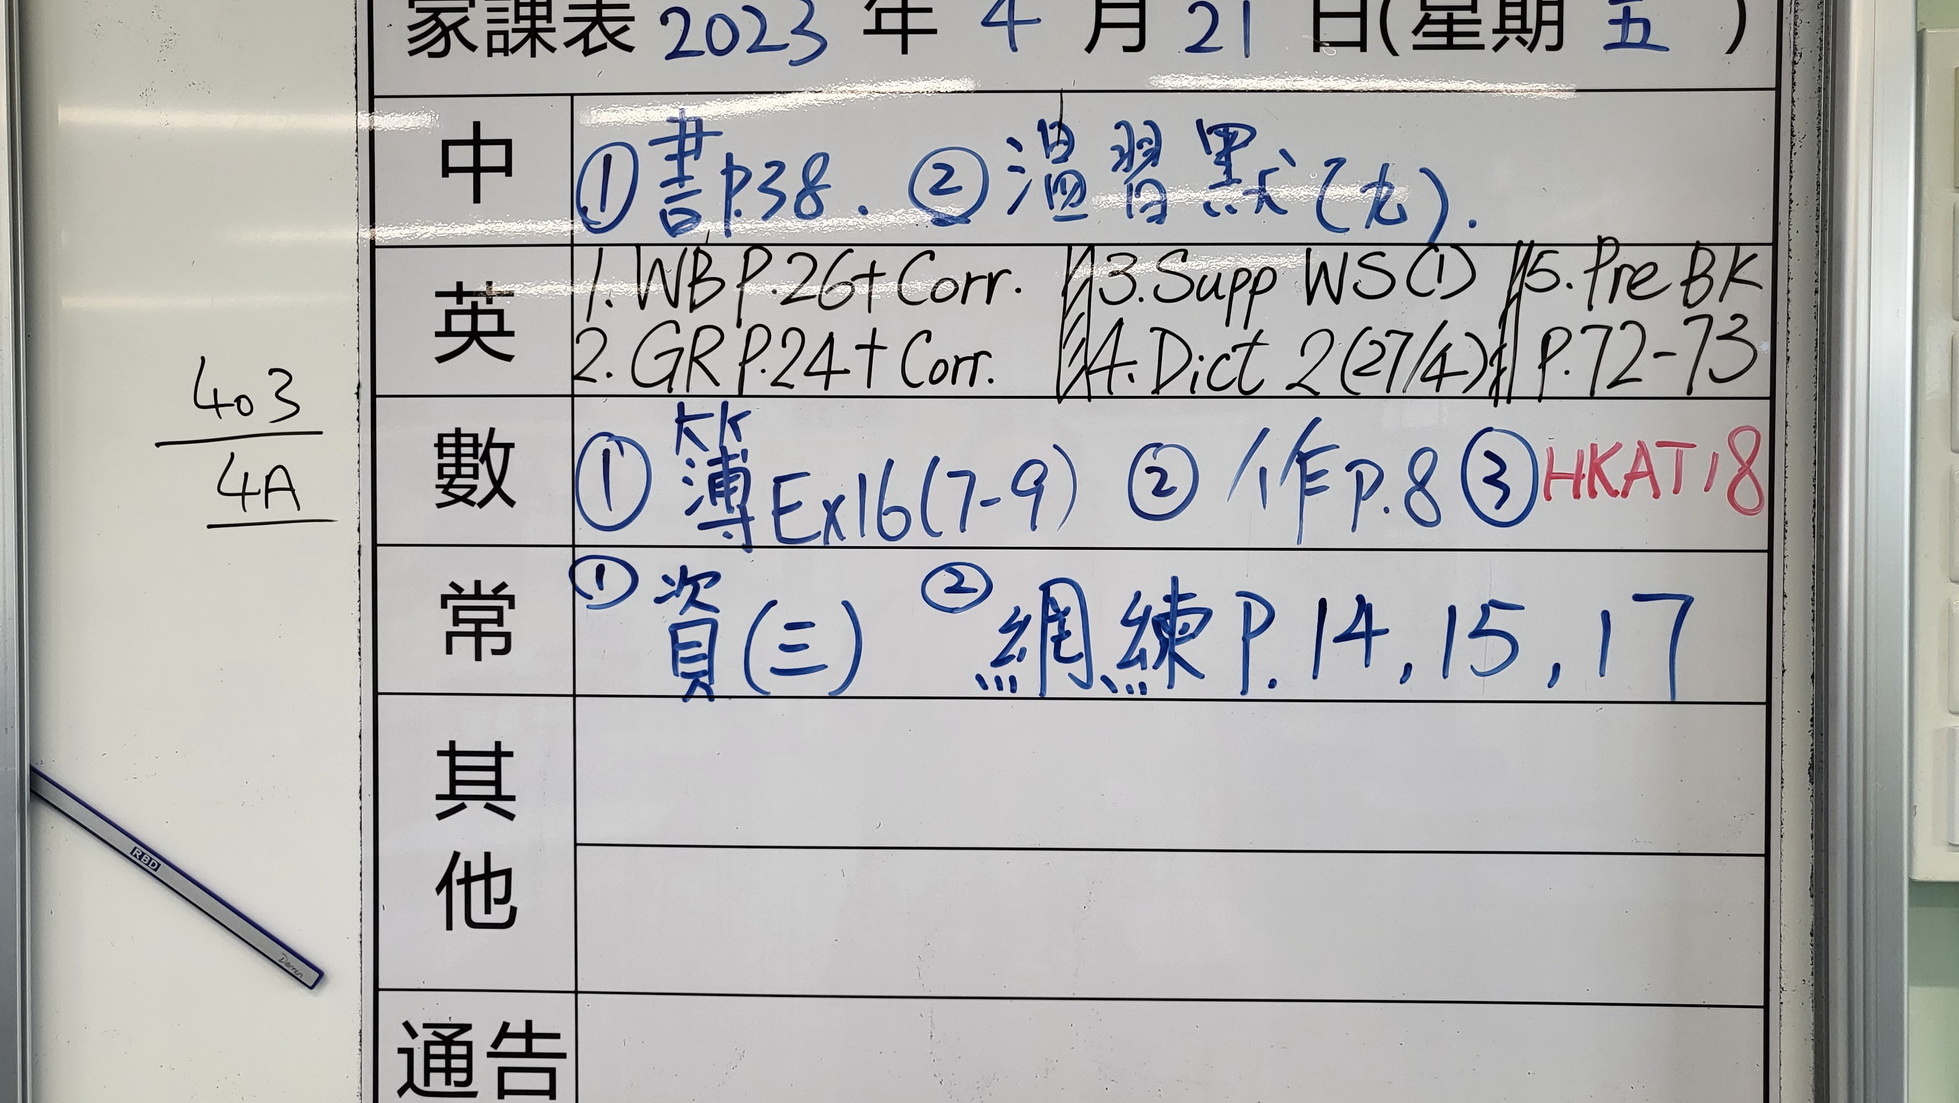 家課表 2023 年 4 月 21 日(星期 五 )
中 ①書P.38. ②溫習默(九).
英 1. WB P.26+Corr. 3.Supp WS(1) 5.Pre BK
2. GR P.24+Corr. 4.Dict 2(27/4) P.72-73
數 ①簿Ex16(7-9) ②作P.8 ③HKAT18
常 ①資(三) ②網練P.14,15,17
其他
通告
403
4A
RBD
Darren